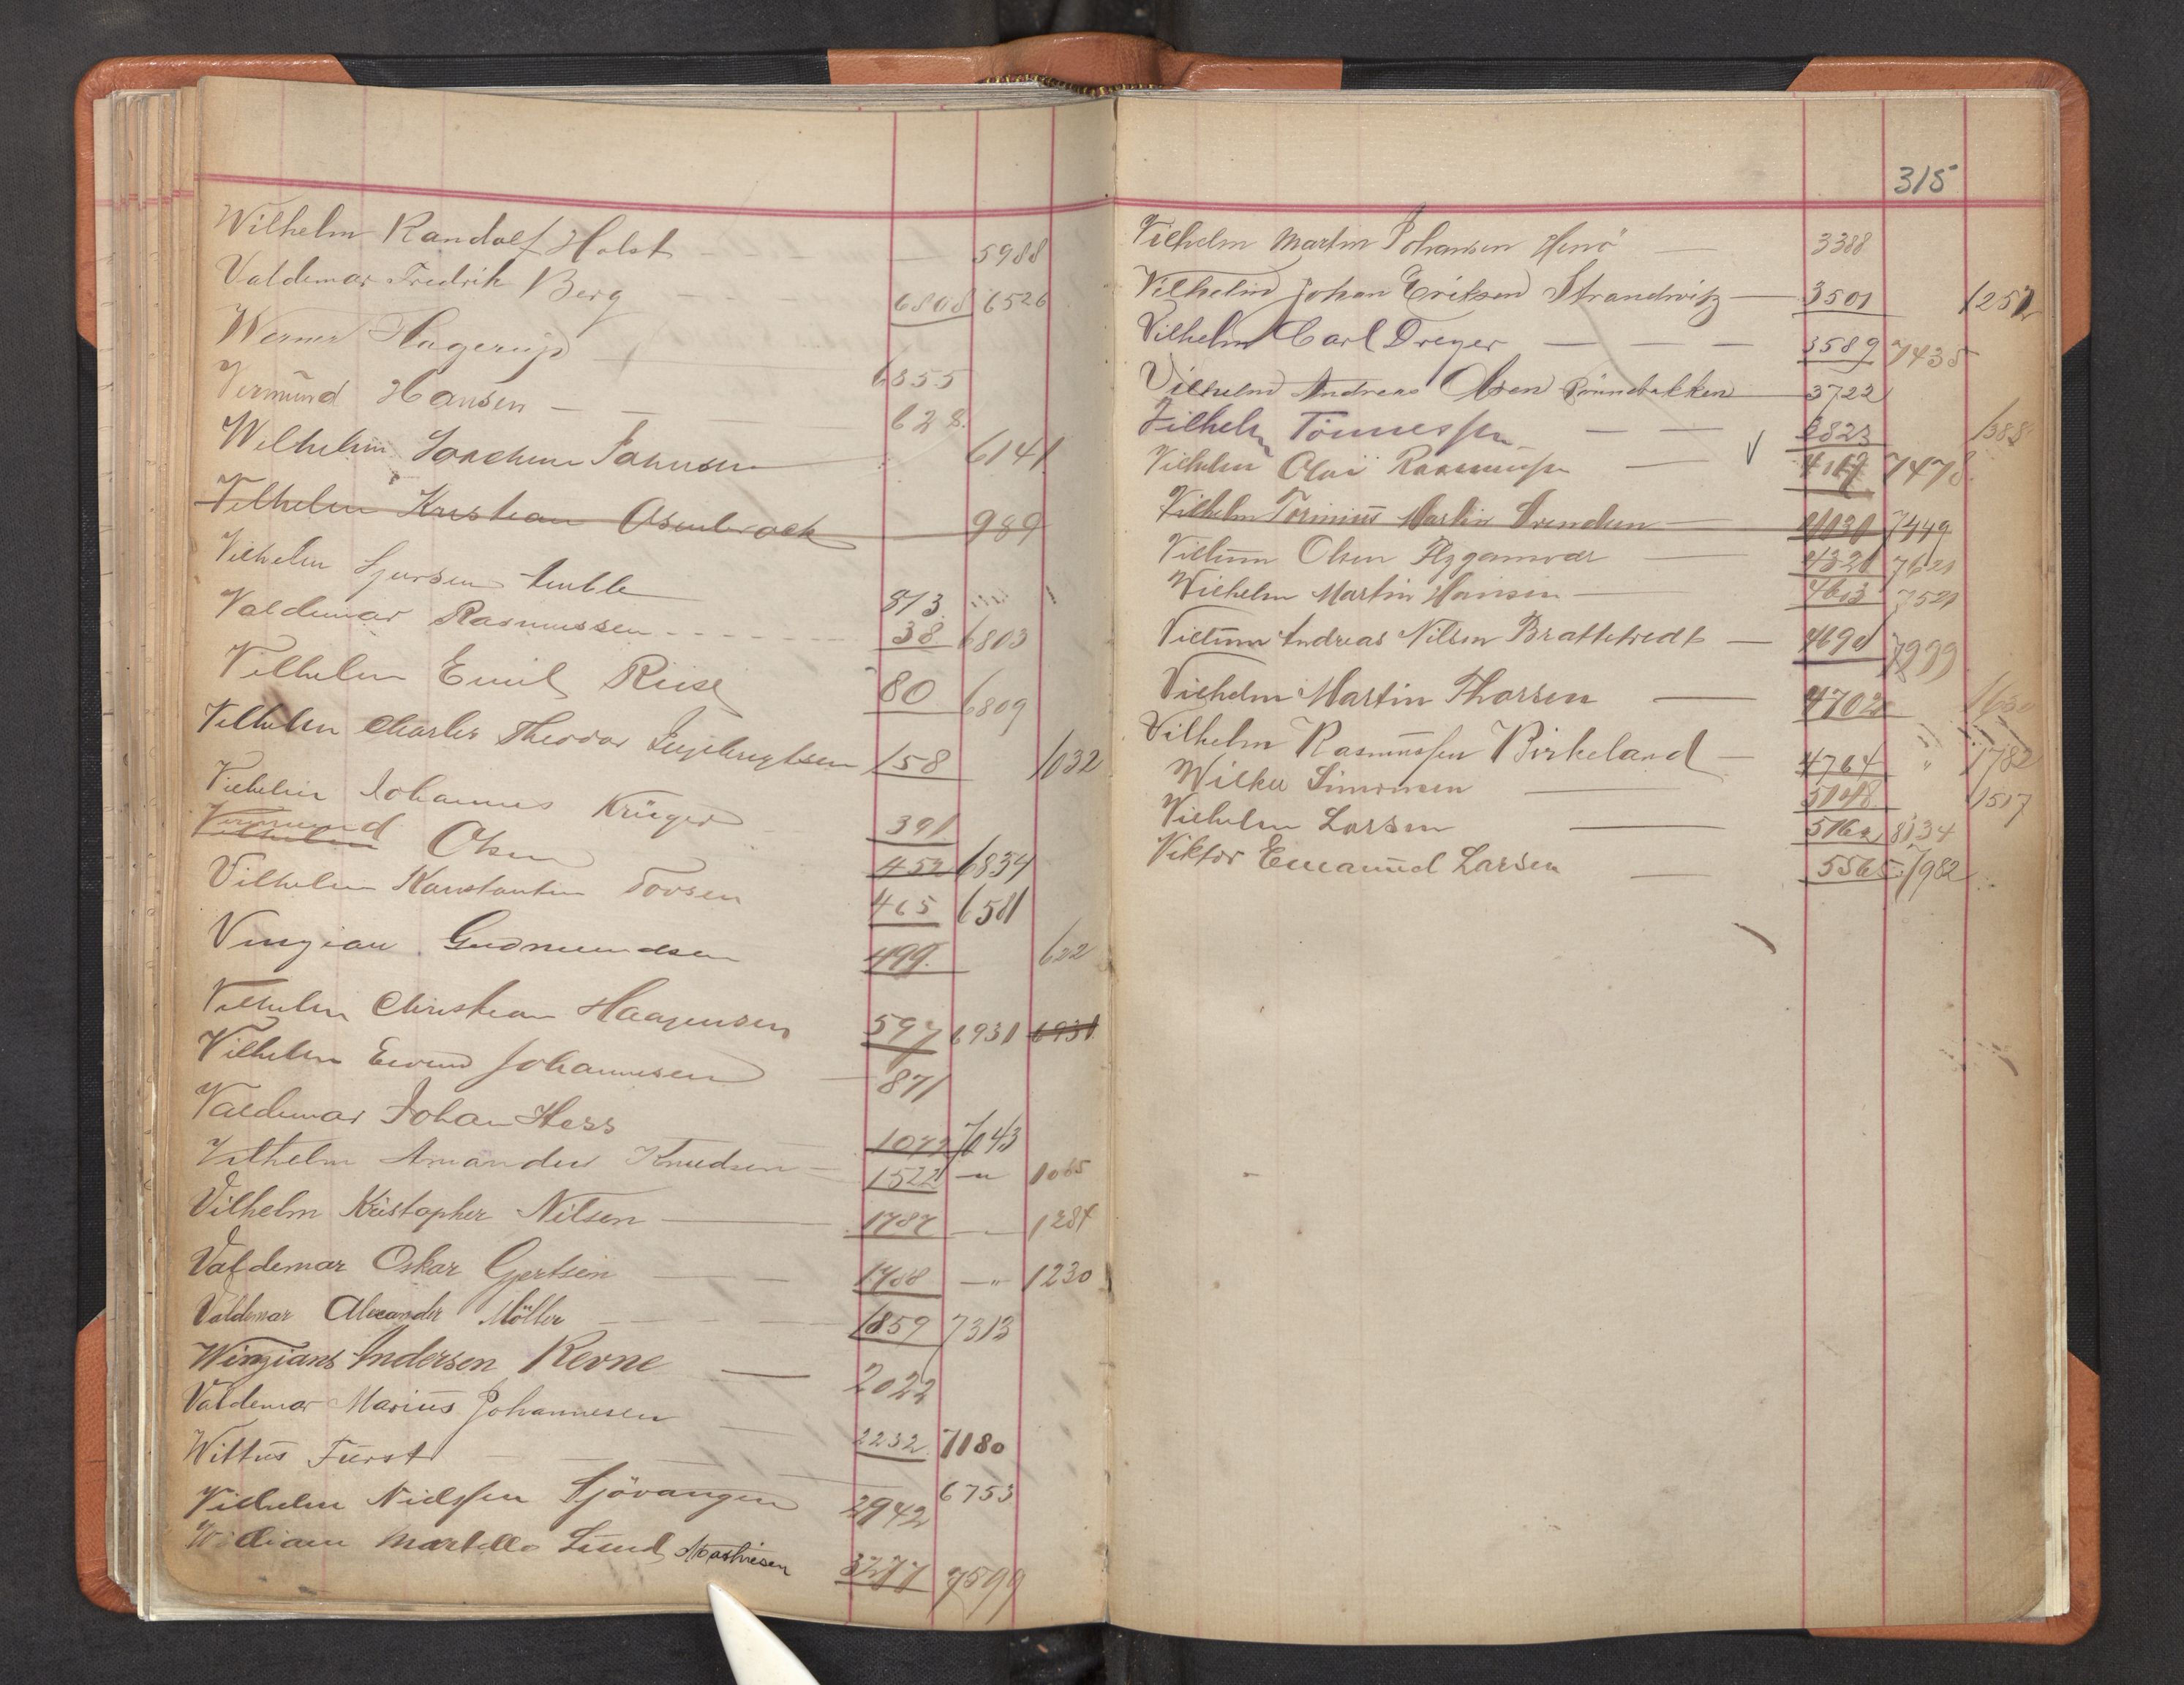 Wilhelm Randolf Holst 5988
Valdemar Fredrik Berg 6808 6526
Werner Hagerup 6355
Vermund Hansen 628.
Wilhelm Joachim Johnsen 6141
Vilhelm Kristian Osenbrock 989
Vilhelm Sjursen 813.
Valdemar Rasmussen 38 6803
Vilhelm Emil Riise 80 6809
Vilhelm Charles Theodor Engebregtsen 158 1032
Vilhelm Johannes Krüger 391
Vermund
Vilhelm Olsen 452 6834
Vilhelm Konstantin Torsen 465 6581
Vingian Gudmundsen 499. 622
Vilhelm Christian Haagensen 597 6931 6931
Vilhelm Johannesen 871
Valdemar Johan Hess 7043
Vilhelm Amandus Knudsen 1522 1065
Vilhelm Kristopher Nilsen 1787 1284
Valdemar Oskar Gjertsen 1788 —"— 1230
Valdemar Alexander Möller 1859 7313
Wingians Andersen Revne 2022
Valdemar Marius Johannesen 2232 7180
Wittus Fürst 6753
Vilhelm Nielssen Sjövangen 2942
William Martello Lund Mathisen 3277 7599
315
Vilhelm Martin Johansen Henö 3388
Vilhelm Johan Eriksen Strandvitz 3501
Vilhelm Carl Dreyer 3589 7438
Vilhelm Andreas Olsen 3722
Vilhelm Tönnessen 3823 1388
Vilhelm Olai Rasmussen 7478
Vilhelm Martin Svendsen 7449
Vilhelm Olsen 4321 7621
Wilhelm Martin Hansen 4603 7521
Vilhelm Andreas Nilsen Brattetvedt 4690 7999
Vilhelm Martin Thorsen 4702
Vilhelm Rasmussen Birkeland 4764 " 1782
Wilke Simonsen 5148 1517
Vilhelm Larsen 5162 8134
Viktor Emanuel Larsen 5565 7982